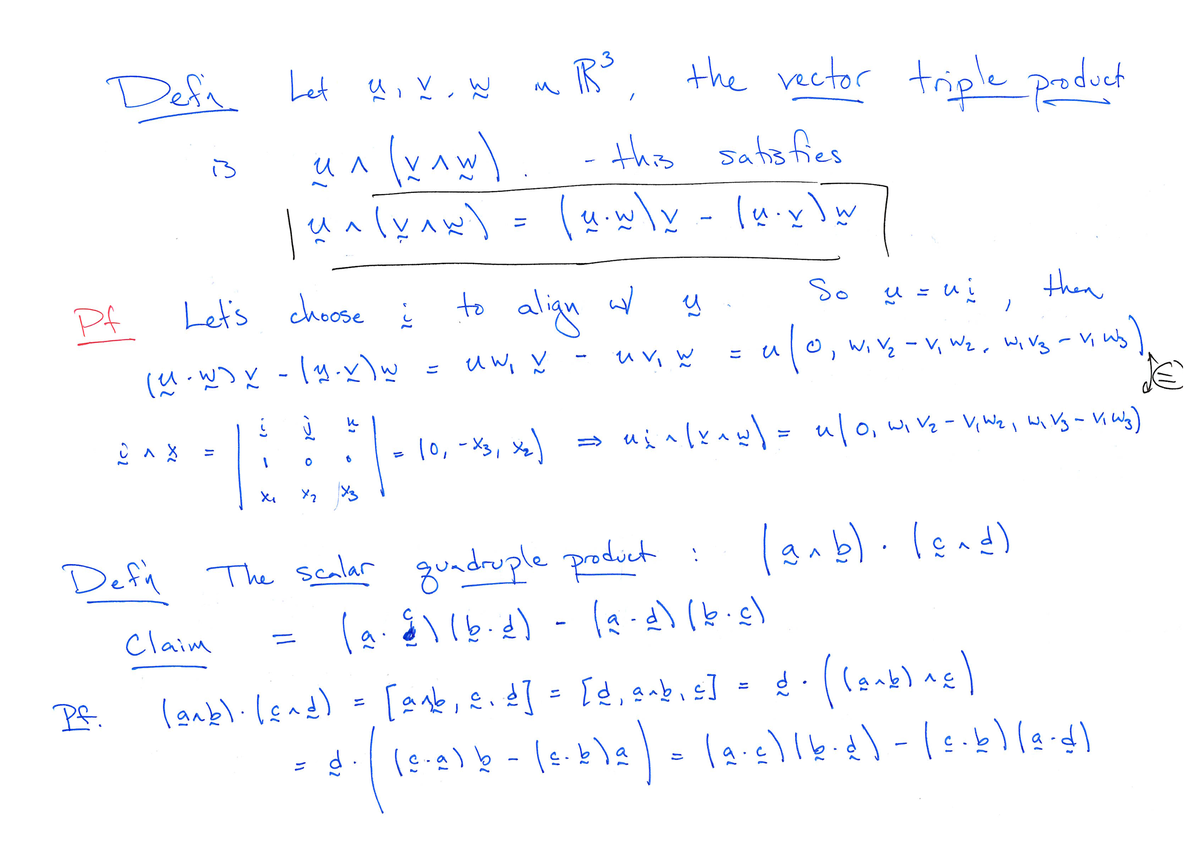 Defn Let u, v, w in ℝ³, the vector triple product
is u ∧ (v ∧ w). - this satisfies
u ∧ (v ∧ w) = (u·w)v - (u·v)w
Pf Let's choose i to align w/ u. So u = ui, then
(u·w)v - (u·v)w = uw₁v - uv₁w = u(0, w₁v₂ - v₁w₂, w₁v₃ - v₁w₃)
i ∧ x = | i j k | = (0, -x₃, x₂) ⇒ ui ∧ (v ∧ w) = u(0, w₁v₂ - v₁w₂, w₁v₃ - v₁w₃)
1 0 0
x₁ x₂ x₃
Def'n The scalar quadruple product : (a ∧ b)·(c ∧ d)
Claim = (a·c)(b·d) - (a·d)(b·c)
Pf. (a∧b)·(c∧d) = [a∧b, c, d] = [d, a∧b, c] = d·((a∧b)∧c)
= d·((c·a)b - (c·b)a) = (a·c)(b·d) - (c·b)(a·d)